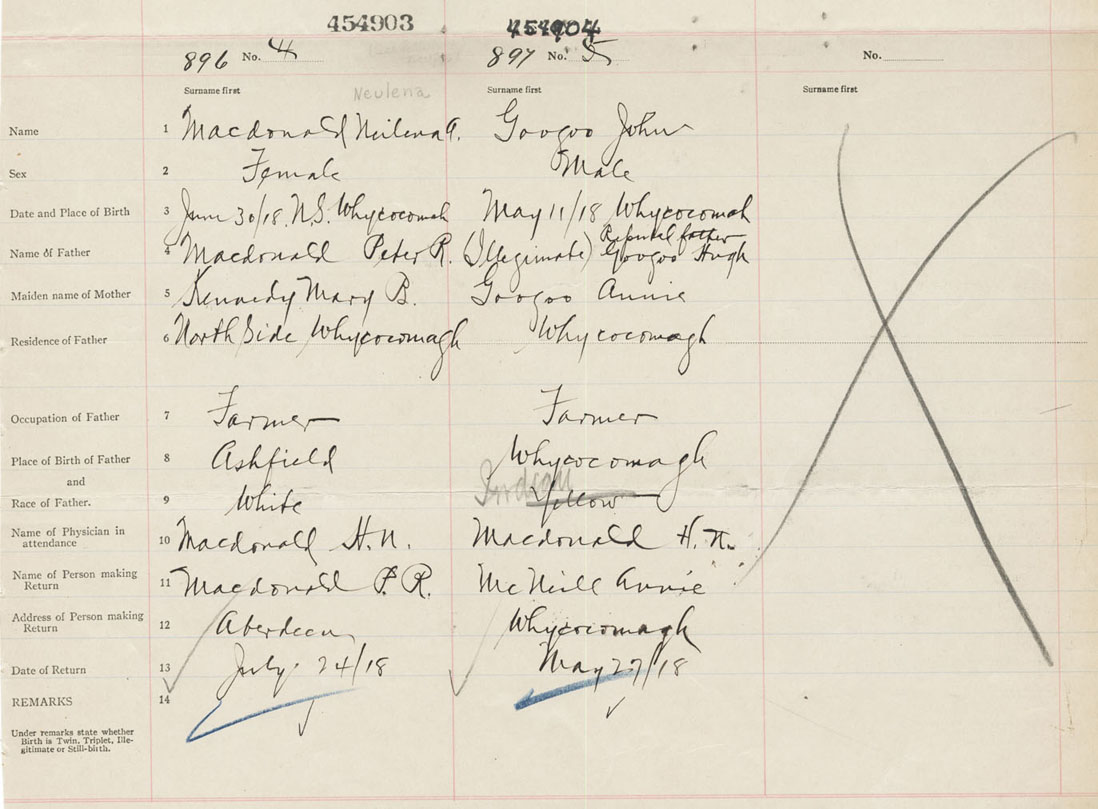 454903 454904
896 No. 4 897 No. 5 No.
Surname first Neulena Surname first Surname first
Name 1 Macdonald Neilena A. Googoo John
Sex 2 Female Male
Date and Place of Birth 3 June 30/18. N.S. Whycocomah May 11/18 Whycocomah
Reputed father
Name of Father 4 Macdonald Peter R. (Illegimate) Googoo Hugh
Maiden name of Mother 5 Kennedy Mary B. Googoo Annie
Residence of Father 6 North Side Whycocomagh Whycocomagh
Occupation of Father 7 Farmer Farmer
Place of Birth of Father 8 Ashfield Whycocomagh
and
Indian
Race of Father. 9 White Yellow
Name of Physician in
attendance 10 Macdonald H.N. Macdonald H.N.
Name of Person making
Return 11 Macdonald P. R. McNeill Annie
Address of Person making
Return 12 Aberdeen Whycocomagh
Date of Return 13 July 24/18 May 27/18
REMARKS 14
Under remarks state whether
Birth is Twin, Triplet, Ille-
gitimate or Still-birth.